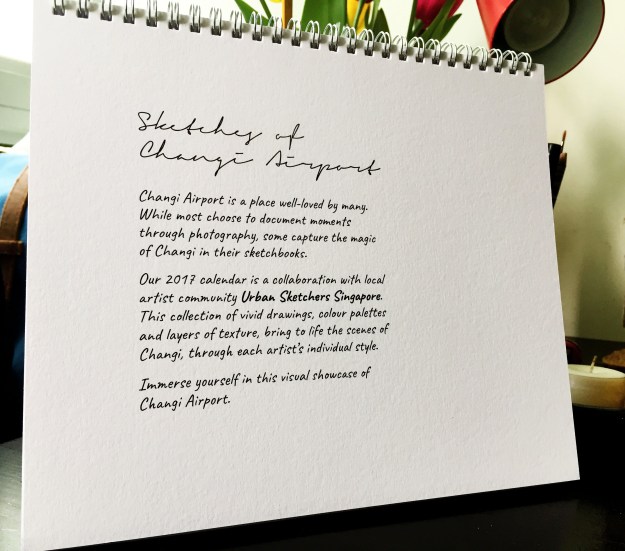 Sketches of
Changi Airport
Changi Airport is a place well-loved by many.
While most choose to document moments
through photography, some capture the magic
of Changi in their sketchbooks.
Our 2017 calendar is a collaboration with local
artist community Urban Sketchers Singapore.
This collection of vivid drawings, colour palettes
and layers of texture, bring to life the scenes of
Changi, through each artist's individual style.
Immerse yourself in this visual showcase of
Changi Airport.